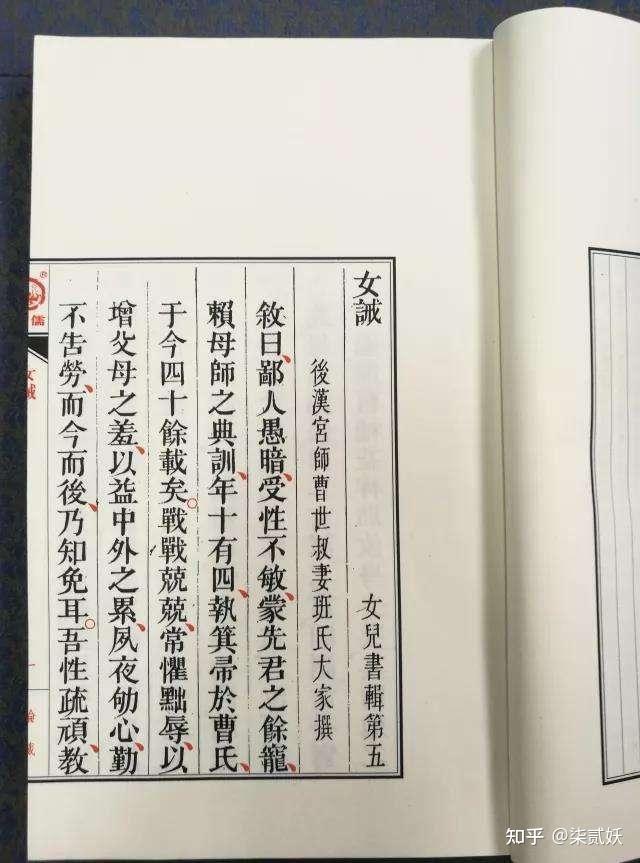 女誡 女兒書輯第五
後漢宮師曹世叔妻班氏大家撰
敘曰、鄙人愚暗、受性不敏、蒙先君之餘寵、
賴母師之典訓、年十有四、執箕帚於曹氏、
于今四十餘載矣。戰戰兢兢、常懼黜辱、以
增父母之羞、以益中外之累、夙夜劬心、勤
不告勞、而今而後、乃知免耳。吾性疏頑、教
儒
女誡
知乎 @柒貳妖